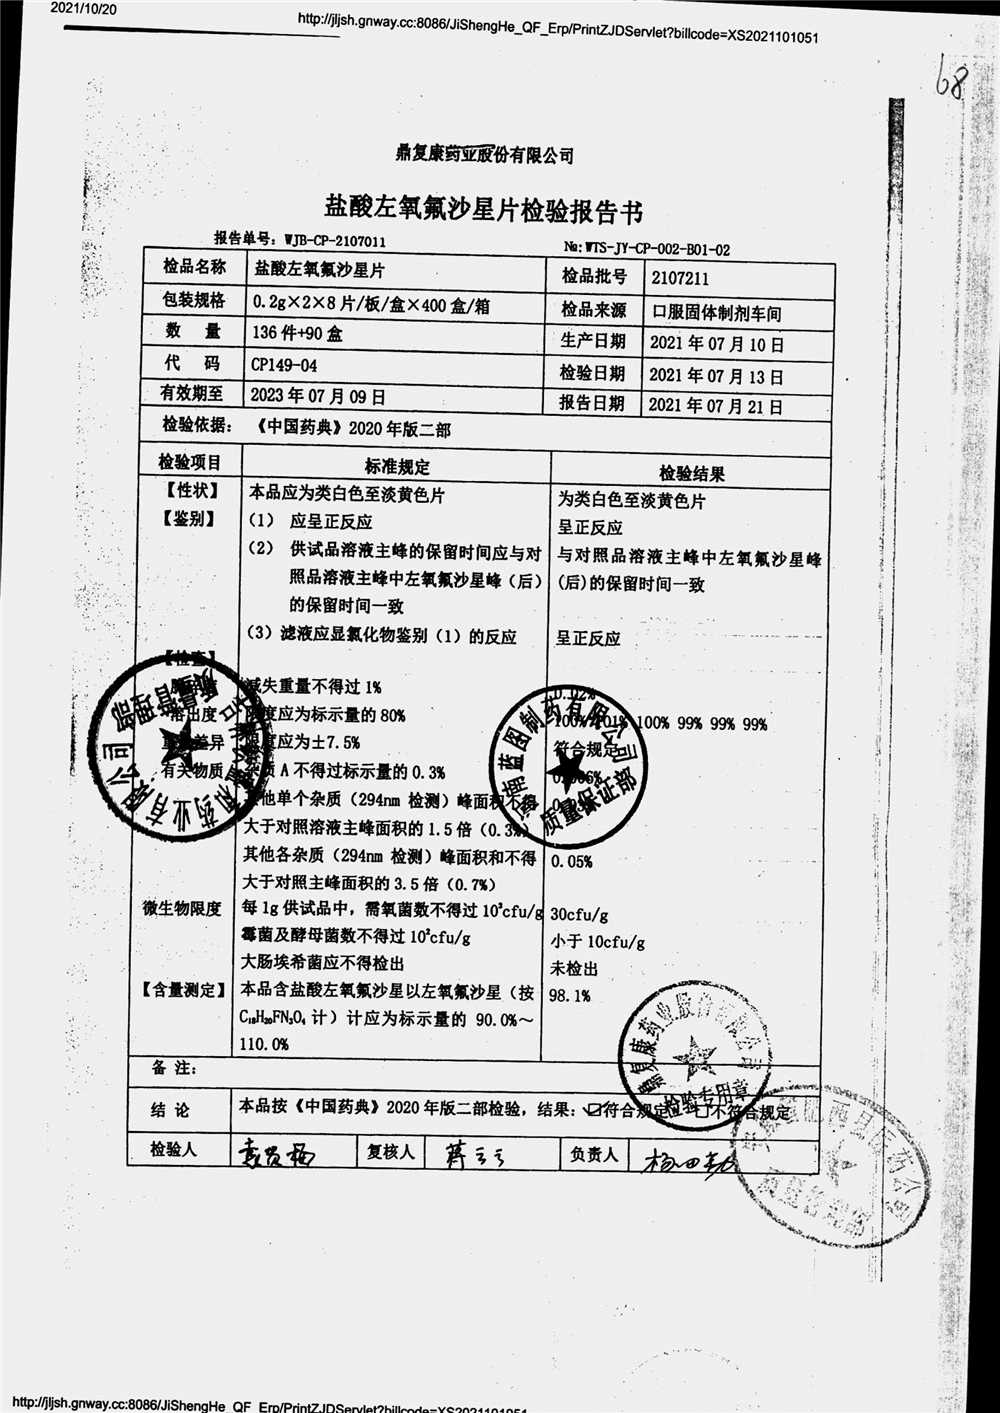 2021/10/20
http://jljsh.gnway.cc:8086/JiShengHe_QF_Erp/PrintZJDServlet?billcode=XS2021101051
68
鼎复康药业股份有限公司
盐酸左氧氟沙星片检验报告书
报告单号：WJB-CP-2107011 №:WTS-JY-CP-002-B01-02
检品名称 盐酸左氧氟沙星片 检品批号 2107211
包装规格 0.2g×2×8片/板/盒×400盒/箱 检品来源 口服固体制剂车间
数 量 136件+90盒 生产日期 2021年07月10日
代 码 CP149-04 检验日期 2021年07月13日
有效期至 2023年07月09日 报告日期 2021年07月21日
检验依据： 《中国药典》2020年版二部
检验项目 标准规定 检验结果
【性状】 本品应为类白色至淡黄色片 为类白色至淡黄色片
【鉴别】 （1） 应呈正反应 呈正反应
（2） 供试品溶液主峰的保留时间应与对 与对照品溶液主峰中左氧氟沙星峰
照品溶液主峰中左氧氟沙星峰（后） (后)的保留时间一致
的保留时间一致
（3）滤液应显氯化物鉴别（1）的反应 呈正反应
【检查】
减失重量不得过1% 0.02%
溶出度 限度应为标示量的80% 100% 101% 100% 99% 99% 99%
差异 限度应为±7.5% 符合规定
有关物质 杂质A不得过标示量的0.3%
其他单个杂质（294nm 检测）峰面积不得
大于对照溶液主峰面积的1.5倍（0.3%）
其他各杂质（294nm 检测）峰面积和不得 0.05%
大于对照主峰面积的3.5倍（0.7%）
微生物限度 每1g供试品中，需氧菌数不得过10³cfu/g 30cfu/g
霉菌及酵母菌数不得过10²cfu/g 小于10cfu/g
大肠埃希菌应不得检出 未检出
【含量测定】 本品含盐酸左氧氟沙星以左氧氟沙星（按 98.1%
C₁₈H₂₀FN₃O₄ 计）计应为标示量的 90.0%～
110.0%
备 注：
结 论 本品按《中国药典》2020年版二部检验，结果：☑符合规定 □不符合规定
检验人 复核人 负责人
质量管理部
南蓝图制药有限公司
质量保证部
鼎复康药业股份有限公司
检验专用章
http://jljsh.gnway.cc:8086/JiShengHe_QF_Erp/PrintZJDServlet?billcode=XS2021101051